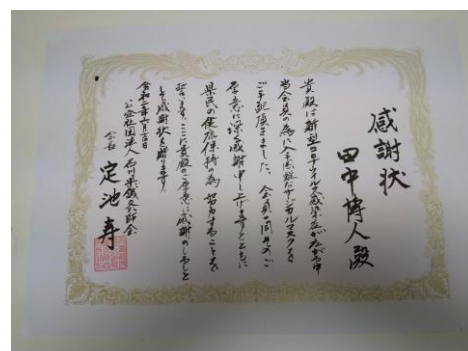 感謝状
田中博人殿
貴殿は新型コロナウイルス感染症が広がる中
当会員の為に入手困難なサージカルマスクを
ご手配頂きました 会員一同そのご
厚意に深く感謝申し上げますとともに
県民の健康保持の為努力することを
誓います ここに貴殿のご厚意に感謝のしるしと
して感謝状を贈ります
令和二年六月吉日
公益社団法人石川県鍼灸師会
会長 定池寿